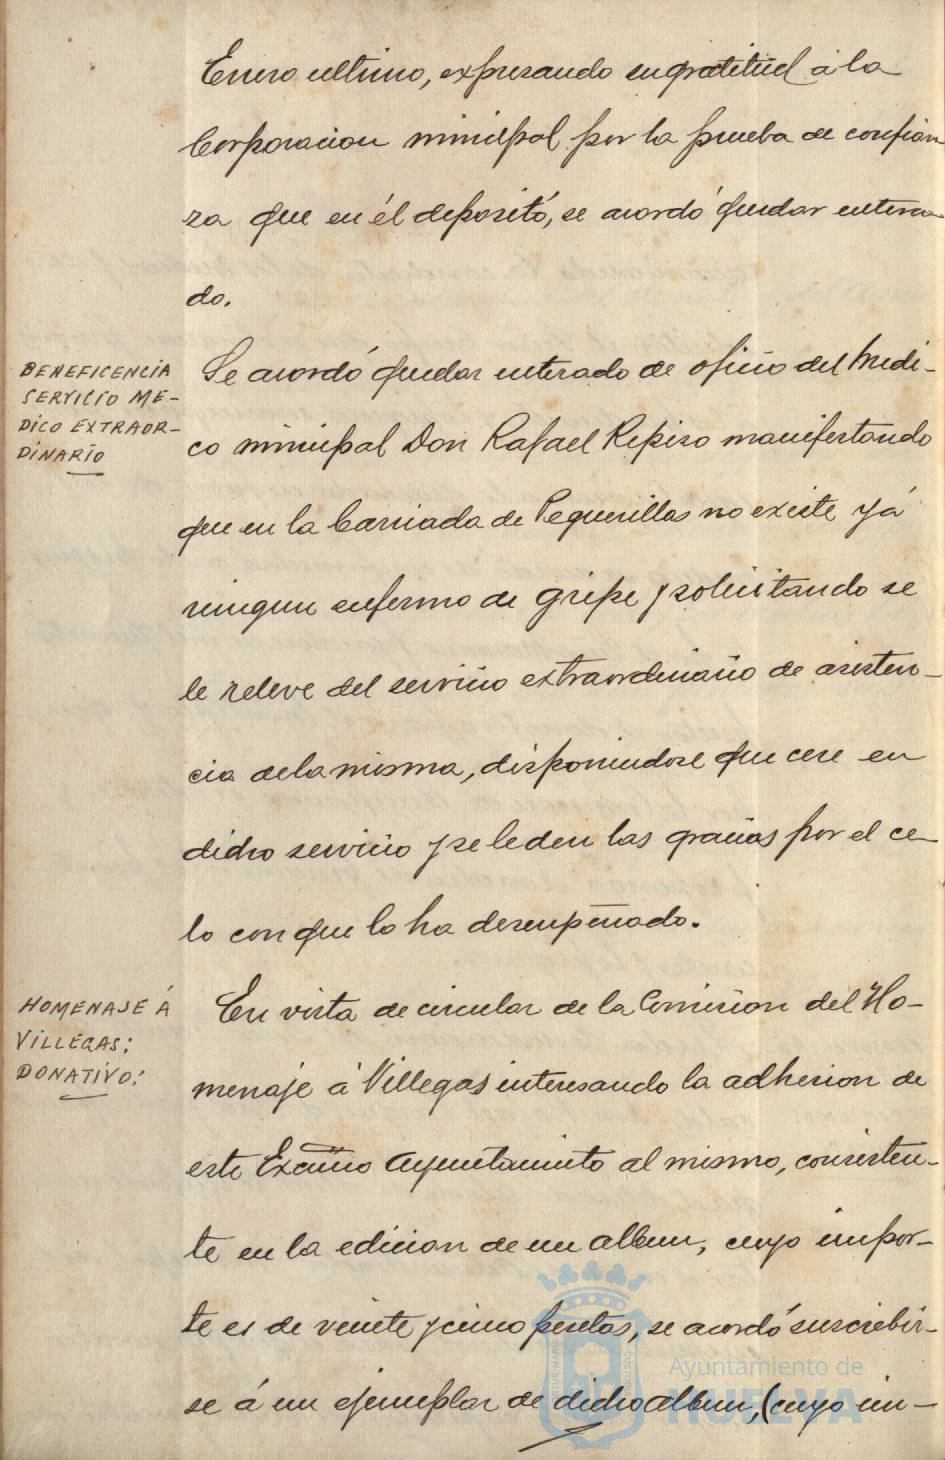 Enero ultimo, expresando su gratitud á la
Corporacion municipal por la prueba de confian
za que en él depositó, se acordó quedar entera
do.
BENEFICENCIA
SERVICIO ME-
DICO EXTRAOR-
DINARIO
Se acordó quedar enterado de oficio del Médi-
co municipal Don Rafael Repiso manifestando
que en la barriada de Peguerillas no existe yá
ningun enfermo de gripe y solicitando se
le releve del servicio extraordinario de asisten-
cia de la misma, disponiendose que cese en
dicho servicio y se le den las gracias por el ce-
lo con que lo ha desempeñado.
HOMENAJE Á
VILLEGAS:
DONATIVO:
En vista de circular de la Comision del Ho-
menaje á Villegas interesando la adhesion de
este Excmo Ayuntamiento al mismo, consisten-
te en la edicion de un album, cuyo impor-
te es de veinte y cinco pesetas, se acordó suscribir-
se á un ejemplar de dicho album, (cuyo im-
Ayuntamiento de
HUELVA